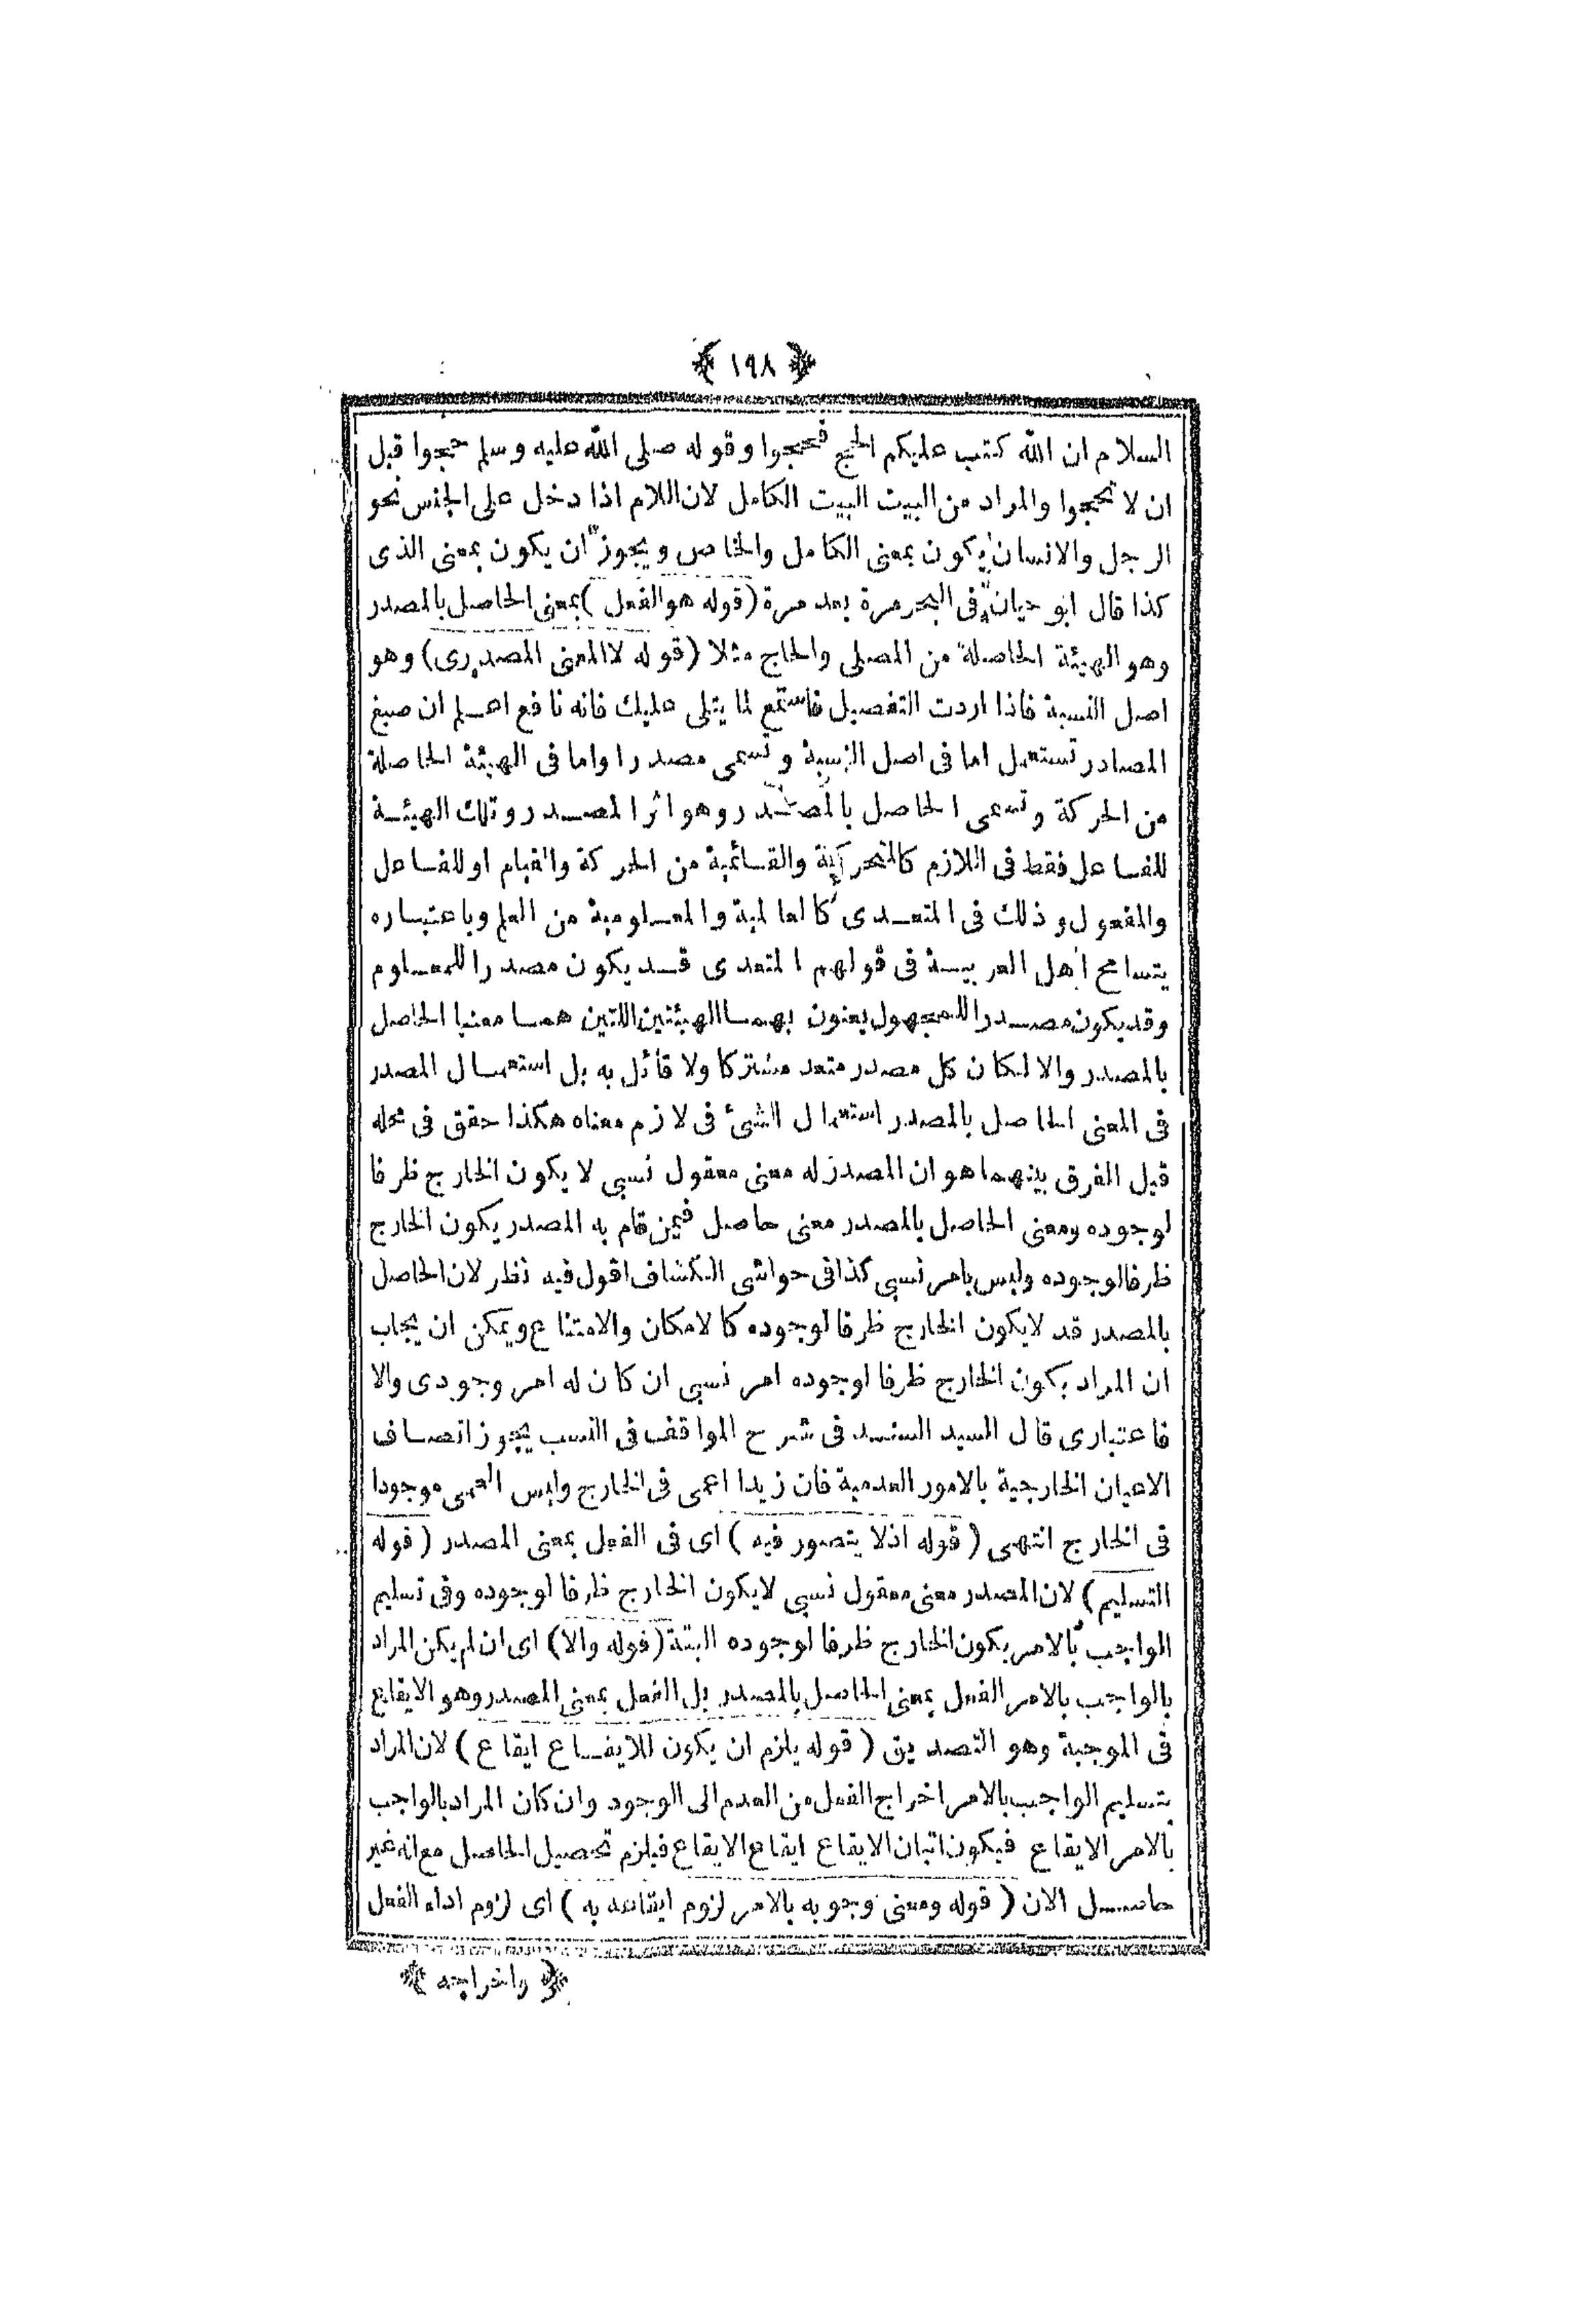 ﴿ ١٩٨ ﴾
السلام ان الله كتب عليكم الحج فحجوا وقوله صلى الله عليه وسلم حجوا قبل
ان لا تحجوا والمراد من البيت البيت الكامل لان اللام اذا دخل على الجنس نحو
الرجل والانسان يكون بمعنى الكامل والخاص ويجوز ان يكون بمعنى الذى
كذا قال ابو حيان فى البحر مرة بعد مرة (قوله هو الفعل) بمعنى الحاصل بالمصدر
وهو الهيئة الحاصلة من المصلى والحاج مثلا (قوله لا المعنى المصدرى) وهو
اصل النسبة فاذا اردت التفصيل فاستمع لما يتلى عليك فانه نافع اعلم ان صيغ
المصادر تستعمل اما فى اصل النسبة وتسمى مصدرا واما فى الهيئة الحاصلة
من الحركة وتسمى الحاصل بالمصدر وهو اثر المصدر وتلك الهيئة
للفاعل فقط فى اللازم كالمتحركية والقائمية من الحركة والقيام او للفاعل
والمفعول وذلك فى المتعدى كالعالمية والمعلومية من العلم وباعتباره
يتسامح اهل العربية فى قولهم المتعدى قد يكون مصدرا للمعلوم
وقد يكون مصدرا للمجهول يعنون بهما الهيئتين اللتين هما معنيا الحاصل
بالمصدر والا لكان كل مصدر متعد مشتركا ولا قائل به بل استعمال المصدر
فى المعنى الحاصل بالمصدر استعمال الشئ فى لازم معناه هكذا حقق فى محله
قيل الفرق بينهما هو ان المصدر له معنى معقول نسبى لا يكون الخارج ظرفا
لوجوده ومعنى الحاصل بالمصدر معنى حاصل فيمن قام به المصدر يكون الخارج
ظرفا لوجوده وليس بامر نسبى كذا فى حواشى الكشاف اقول فيه نظر لان الحاصل
بالمصدر قد لا يكون الخارج ظرفا لوجوده كالامكان والامتناع ويمكن ان يجاب
ان المراد بكون الخارج ظرفا لوجوده امر نسبى ان كان له امر وجودى والا
فاعتبارى قال السيد السند فى شرح المواقف فى النسب يجوز اتصاف
الاعيان الخارجية بالامور العدمية فان زيدا اعمى فى الخارج وليس العمى موجودا
فى الخارج انتهى (قوله اذ لا يتصور فيه) اى فى الفعل بمعنى المصدر (قوله
التسليم) لان المصدر معنى معقول نسبى لا يكون الخارج ظرفا لوجوده وفى تسليم
الواجب بالامر يكون الخارج ظرفا لوجوده البتة (قوله والا) اى ان لم يكن المراد
بالواجب بالامر الفعل بمعنى الحاصل بالمصدر بل الفعل بمعنى المصدر وهو الايقاع
فى الموجبة وهو التصديق (قوله يلزم ان يكون للايقاع ايقاع) لان المراد
بتسليم الواجب بالامر اخراج الفعل من العدم الى الوجود وان كان المراد بالواجب
بالامر الايقاع فيكون اتيان الايقاع ايقاع الايقاع فيلزم تحصيل الحاصل مع انه غير
حاصل الان (قوله ومعنى وجوبه بالامر لزوم ايقاعه به) اى لزوم اداء الفعل
﴿ واخراجه ﴾